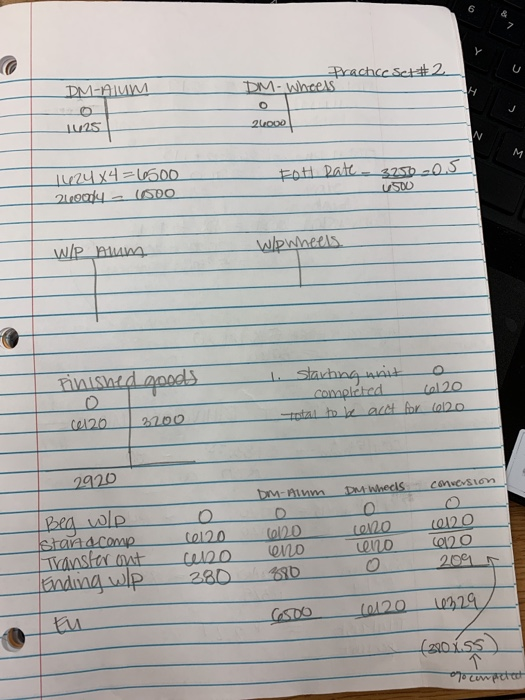 Practice Set #2
DM-Alum DM-Wheels
0 0
1625 26000
1624 x 4 = 6500 FOH Rate = 3250 = 0.5
26000/4 = 6500 6500
W/P Alum W/P Wheels
Finished goods 1. Starting unit 0
0 completed 6120
6120 3200 total to be acct for 6120
2920
DM-Alum DM-Wheels conversion
Beg W/P 0 0 0 0
Start&comp 6120 6120 6120 6120
Transfer out 6120 6120 6120 6120
Ending W/P 380 380 0 209
EU 6500 6120 6329
(380 x .55)
% completed
6 & 7 Y U H J N M